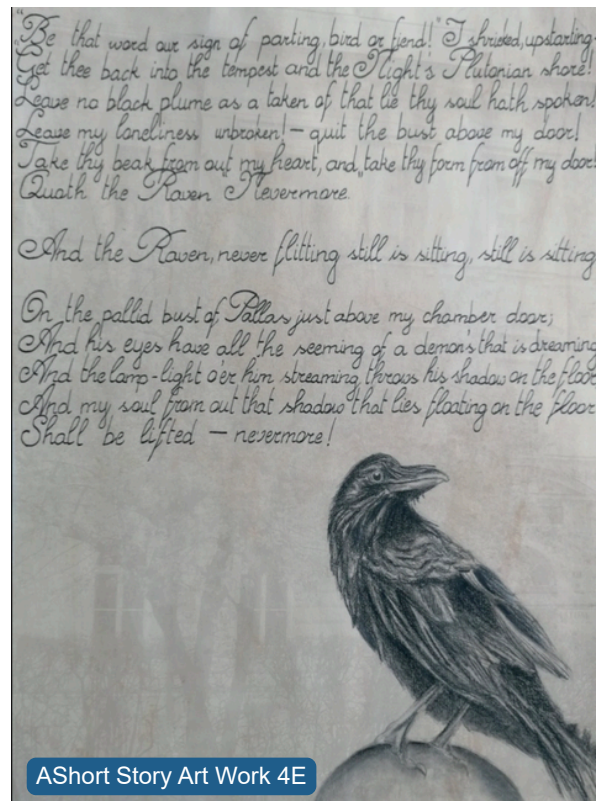 "Be that word our sign of parting, bird or fiend!" I shrieked, upstarting-
"Get thee back into the tempest and the Night's Plutonian shore!
Leave no black plume as a taken of that lie thy soul hath spoken!
Leave my loneliness unbroken! – quit the bust above my door!
Take thy beak from out my heart, and take thy form from off my door!"
Quoth the Raven "Nevermore.
And the Raven, never flitting still is sitting, still is sitting
On the pallid bust of Pallas just above my chamber door;
And his eyes have all the seeming of a demon's that is dreaming
And the lamp-light o'er him streaming throws his shadow on the floor
And my soul from out that shadow that lies floating on the floor
Shall be lifted – nevermore!
AShort Story Art Work 4E